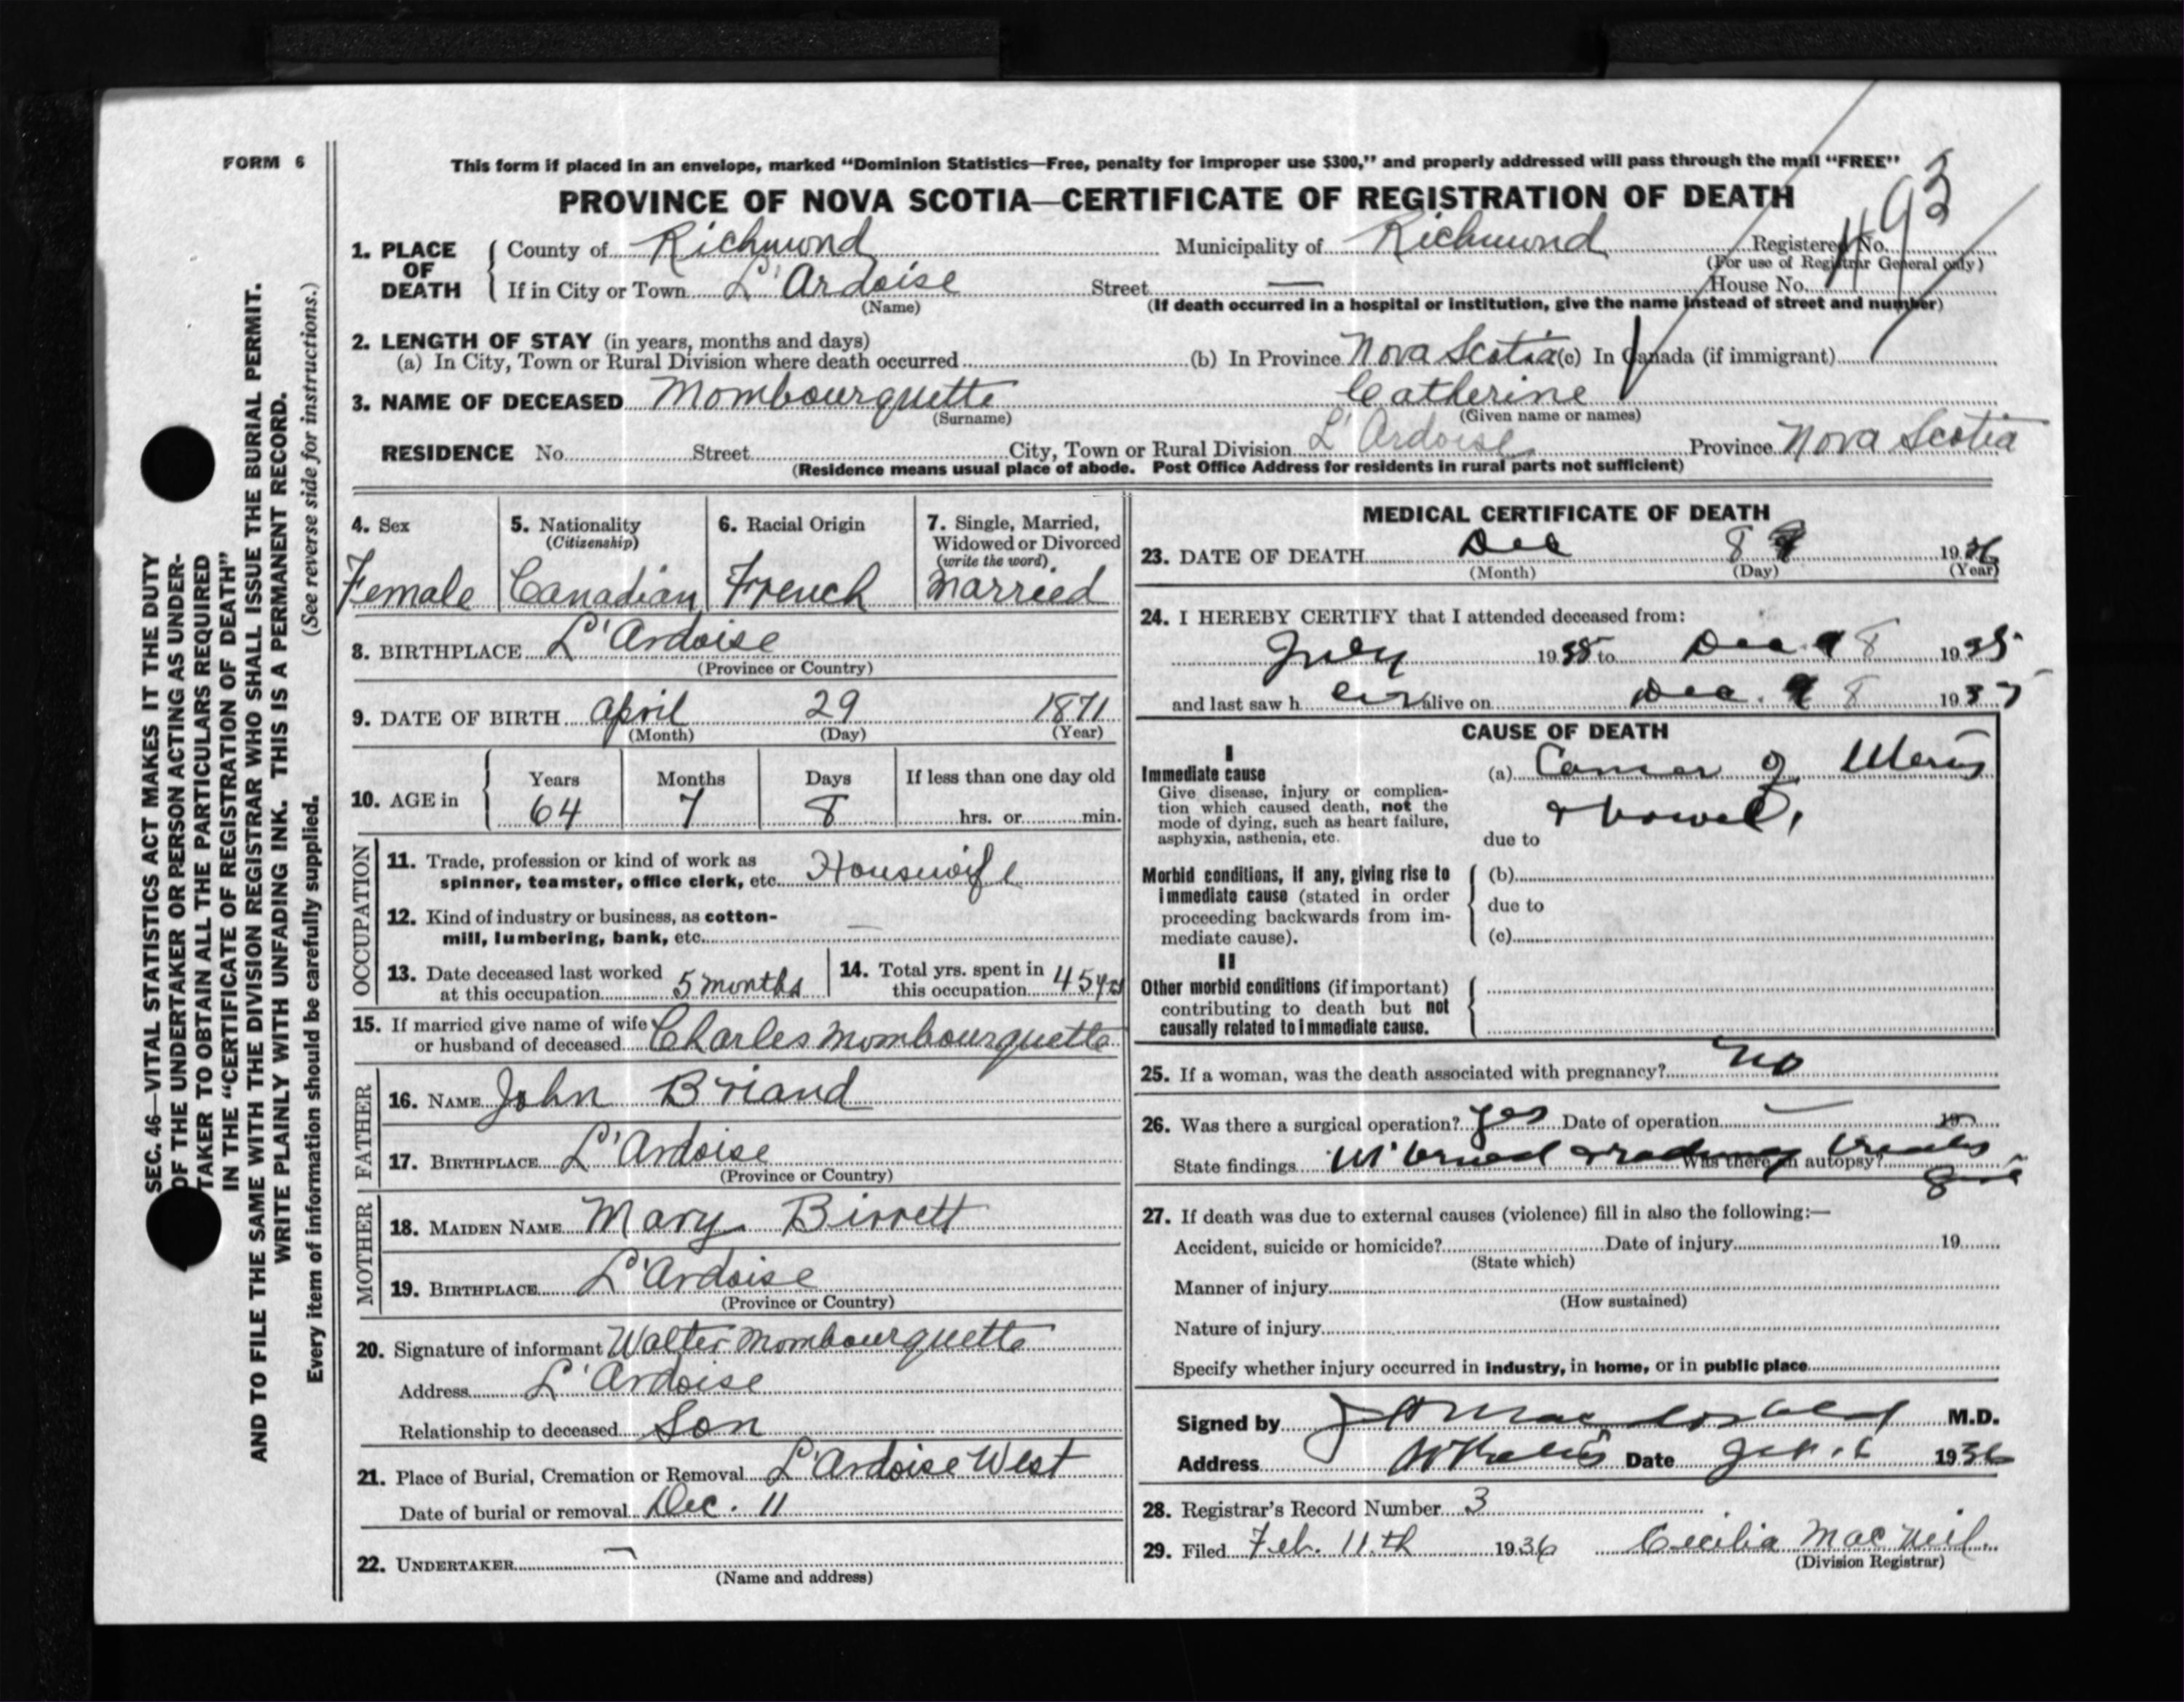 FORM 6
This form if placed in an envelope, marked “Dominion Statistics—Free, penalty for improper use $300,” and properly addressed will pass through the mail “FREE”
PROVINCE OF NOVA SCOTIA—CERTIFICATE OF REGISTRATION OF DEATH
493
1. PLACE OF DEATH
County of Richmond Municipality of Richmond Registered No.
(For use of Registrar General only)
If in City or Town L'Ardoise Street — House No.
(Name) (If death occurred in a hospital or institution, give the name instead of street and number)
2. LENGTH OF STAY (in years, months and days)
(a) In City, Town or Rural Division where death occurred (b) In Province Nova Scotia (c) In Canada (if immigrant)
3. NAME OF DECEASED Mombourquette Catherine
(Surname) (Given name or names)
RESIDENCE No. Street City, Town or Rural Division L'Ardoise Province Nova Scotia
(Residence means usual place of abode. Post Office Address for residents in rural parts not sufficient)
SEC. 46—VITAL STATISTICS ACT MAKES IT THE DUTY
OF THE UNDERTAKER OR PERSON ACTING AS UNDER-
TAKER TO OBTAIN ALL THE PARTICULARS REQUIRED
IN THE “CERTIFICATE OF REGISTRATION OF DEATH”
AND TO FILE THE SAME WITH THE DIVISION REGISTRAR WHO SHALL ISSUE THE BURIAL PERMIT.
WRITE PLAINLY WITH UNFADING INK. THIS IS A PERMANENT RECORD.
Every item of information should be carefully supplied. (See reverse side for instructions.)
4. Sex
Female
5. Nationality
(Citizenship)
Canadian
6. Racial Origin
French
7. Single, Married,
Widowed or Divorced
(write the word)
Married
8. BIRTHPLACE L'Ardoise
(Province or Country)
9. DATE OF BIRTH April 29 1871
(Month) (Day) (Year)
10. AGE in
Years Months Days If less than one day old
64 7 8 hrs. or min.
OCCUPATION
11. Trade, profession or kind of work as
spinner, teamster, office clerk, etc. Housewife
12. Kind of industry or business, as cotton-
mill, lumbering, bank, etc. —
13. Date deceased last worked
at this occupation 5 months
14. Total yrs. spent in
this occupation 45 yrs
15. If married give name of wife
or husband of deceased Charles Mombourquette
FATHER
16. NAME John Briand
17. BIRTHPLACE L'Ardoise
(Province or Country)
MOTHER
18. MAIDEN NAME Mary Birrett
19. BIRTHPLACE L'Ardoise
(Province or Country)
20. Signature of informant Walter Mombourquette
Address L'Ardoise
Relationship to deceased Son
21. Place of Burial, Cremation or Removal L'Ardoise West
Date of burial or removal Dec. 11
22. UNDERTAKER —
(Name and address)
MEDICAL CERTIFICATE OF DEATH
23. DATE OF DEATH Dec 8 19
(Month) (Day) (Year)
24. I HEREBY CERTIFY that I attended deceased from:
July 1935 to Dec. 8 1935
and last saw h er alive on Dec. 8 1935
CAUSE OF DEATH
I
Immediate cause
Give disease, injury or complica-
tion which caused death, not the
mode of dying, such as heart failure,
asphyxia, asthenia, etc.
(a) Cancer of Uterus
& bowel,
due to
Morbid conditions, if any, giving rise to
immediate cause (stated in order
proceeding backwards from im-
mediate cause).
(b)
due to
(c)
II
Other morbid conditions (if important)
contributing to death but not
causally related to immediate cause.
25. If a woman, was the death associated with pregnancy? No
26. Was there a surgical operation? Yes Date of operation — 19
State findings Was there an autopsy?
27. If death was due to external causes (violence) fill in also the following:—
Accident, suicide or homicide? Date of injury 19
(State which)
Manner of injury
(How sustained)
Nature of injury
Specify whether injury occurred in industry, in home, or in public place
Signed by M.D.
Address Date 1936
28. Registrar's Record Number 3
29. Filed Feb. 11th 1936 Cecilia MacNeil.
(Division Registrar)